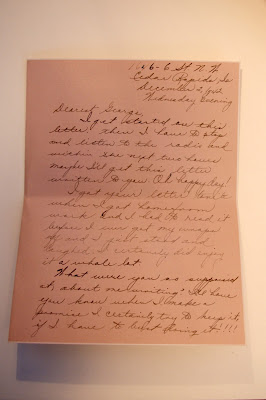 6-E St. N.W
Cedar Rapids, Ia
December 2, 1942
Wednesday Evening
Dearest George,
I get started on this
letter, then I have to stop
and listen to the radio and
within the next two hours
maybe I'll get this letter
written to you. Oh happy day!
I got your letter
when I got home from
work and I had to read it
before I ever got my wraps
off and I just stood and
laughed. I certainly did enjoy
it a whole lot.
What were you so surprised
at, about me writing? I'll have
you know when I make a
promise I certainly try to keep it,
if I have to bust doing it!!!!